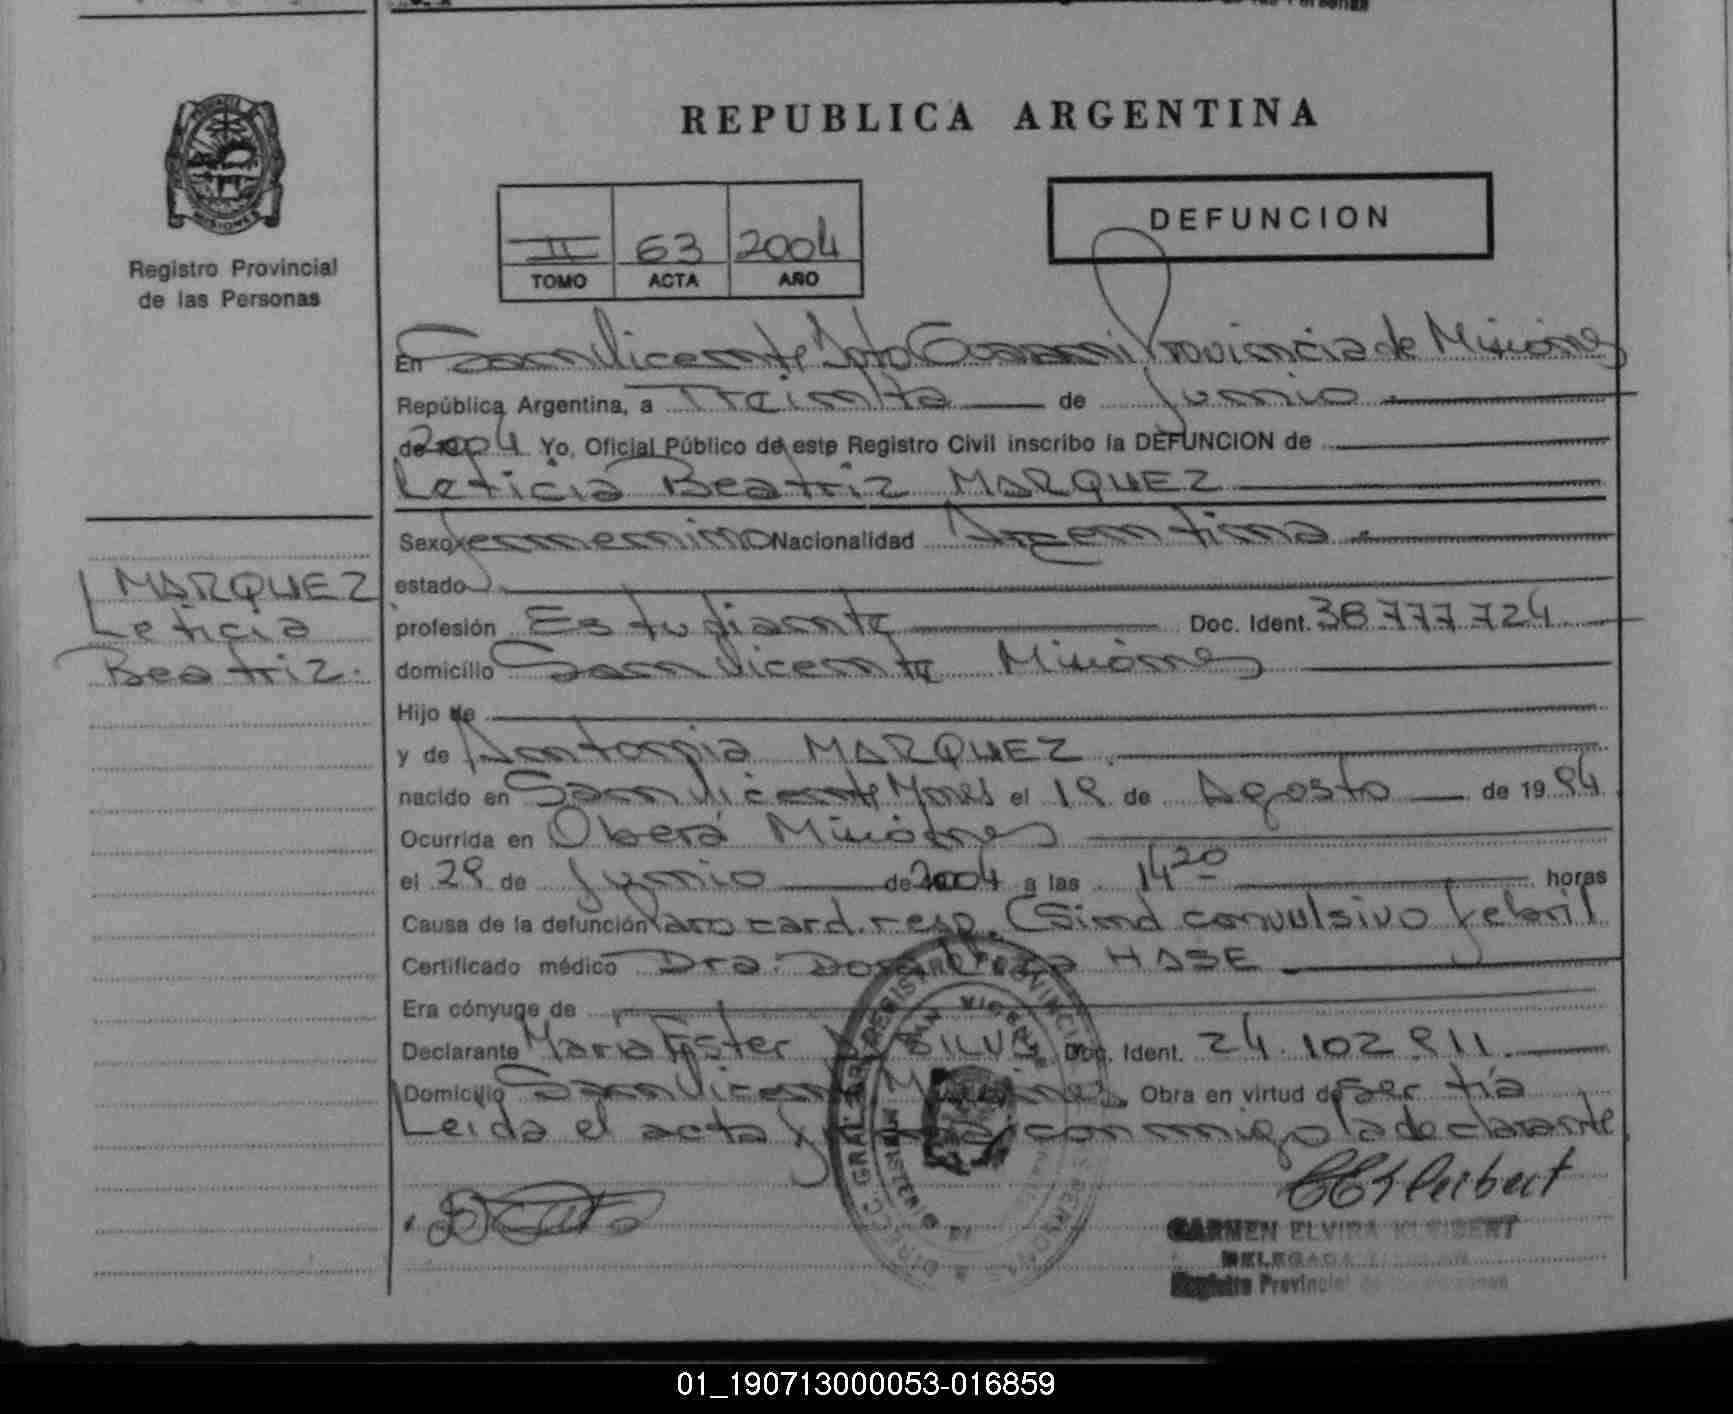 REPUBLICA ARGENTINA
MISIONES
Registro Provincial
de las Personas
DEFUNCION
II 63 2004
TOMO ACTA AÑO
En San Vicente Dpto Guarani Provincia de Misiones
República Argentina, a Treinta de Junio
de 2004 Yo, Oficial Público de este Registro Civil inscribo la DEFUNCION de
Leticia Beatriz MARQUEZ
MARQUEZ
Leticia
Beatriz.
Sexo femenino Nacionalidad Argentina
estado
profesión Estudiante Doc. Ident. 38.777.724
domicilio San Vicente Misiones
Hijo de
y de Antonia MARQUEZ
nacido en San Vicente Mnes el 19 de Agosto de 1994
Ocurrida en Oberá Misiones
el 29 de Junio de 2004 a las 14 20 horas
Causa de la defunción Paro card. resp. (Sind convulsivo febril
Certificado médico Dra. HASE
Era cónyuge de
Declarante Maria Ester SILVA Doc. Ident. 24.102.911
Domicilio San Vicente Misiones Obra en virtud de ser tía
Leída el acta firma conmigo la declarante
CEKleibert
CARMEN ELVIRA KLEIBERT
DELEGADA TITULAR
Registro Provincial de las Personas
01_190713000053-016859